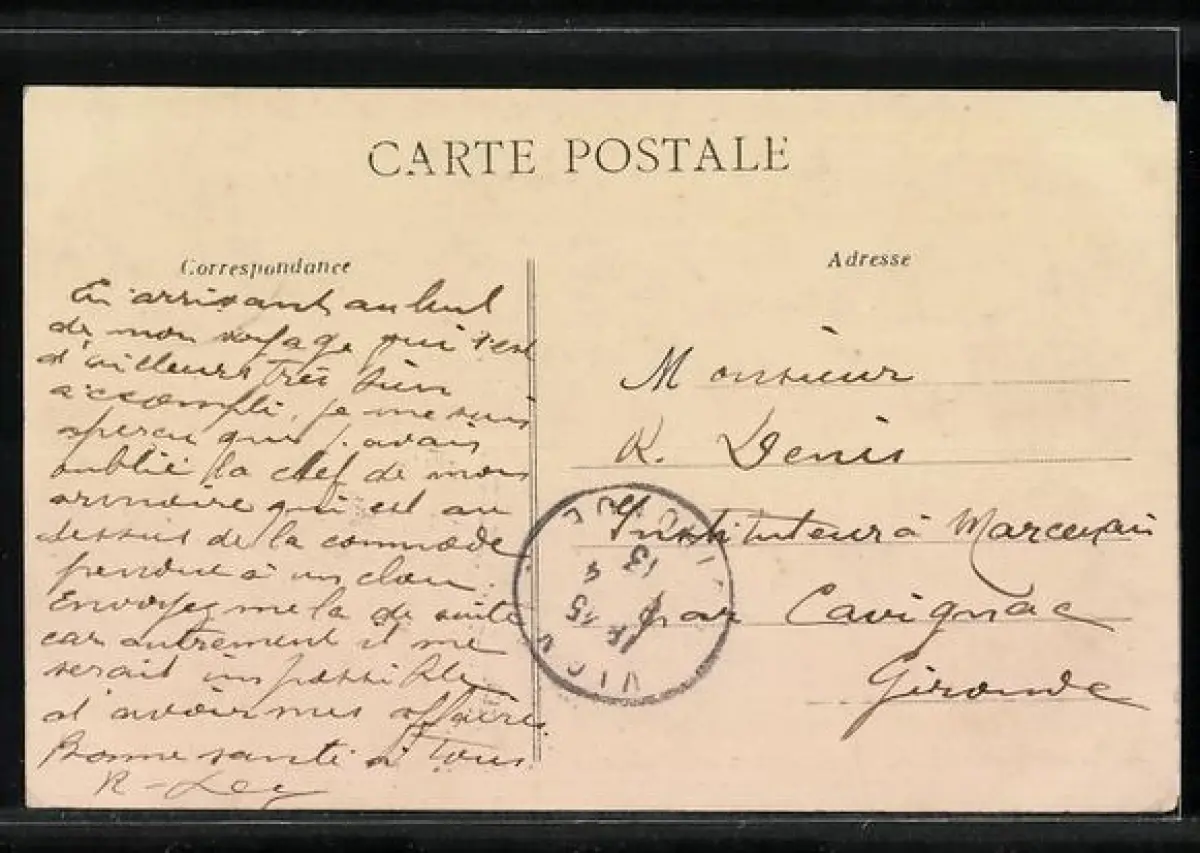 CARTE POSTALE
Correspondance
En arrivant au but
de mon voyage qui s'est
d'ailleurs très bien
accompli, je me suis
aperçu que j'avais
oublié la clef de mon
armoire qui est au
dessus de la commode
pendue à un clou.
Envoyez me la de suite
car autrement il me
serait impossible
d'avoir mes affaires.
Bonne santé à tous.
Adresse
Monsieur
R. Denis
Instituteur à
par Cavignac
Gironde
13 4
15